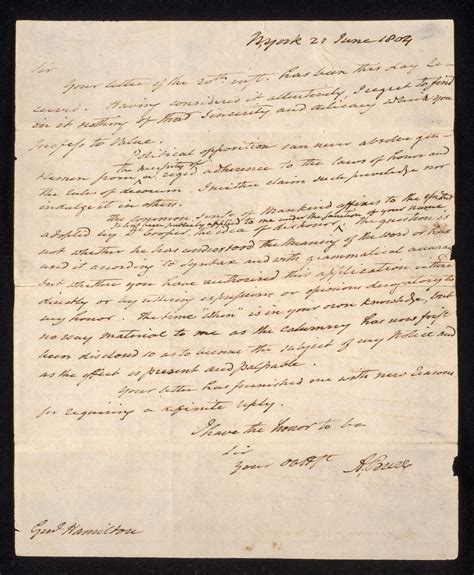 N York 21 June 1804
Sir
Your letter of the 20th inst. has been this day re
ceived. Having considered it attentively, I regret to find
in it nothing of that sincerity and delicacy which you
profess to Value.
Political opposition can never absolve gen
tlemen from the necessity of a rigid adherence to the laws of honor and
the rules of decorum. I neither claim such priviledge nor
indulge it in others.
the Common sense of Mankind affixes to the epithet
adopted by Dr Cooper the idea of dishonor
it has been publicly applied to me under the Sanction of your name
The question is
not whether he has understood the meaning of the word or has
used it according to Syntax and with grammatical accuracy
but whether you have authorised this application either
directly or by uttering expressions or opinions derogatory to
my honor. The time "when" is in your own knowledge, but
no way material to me as the calumny has now first
been disclosed so as to become the subject of my Notice and
as the effect is present and palpable.
Your letter has furnished me with new reasons
for requiring a definite reply.
I have the honor to be
Sir
Your Ob st
A. Burr
Genl Hamilton